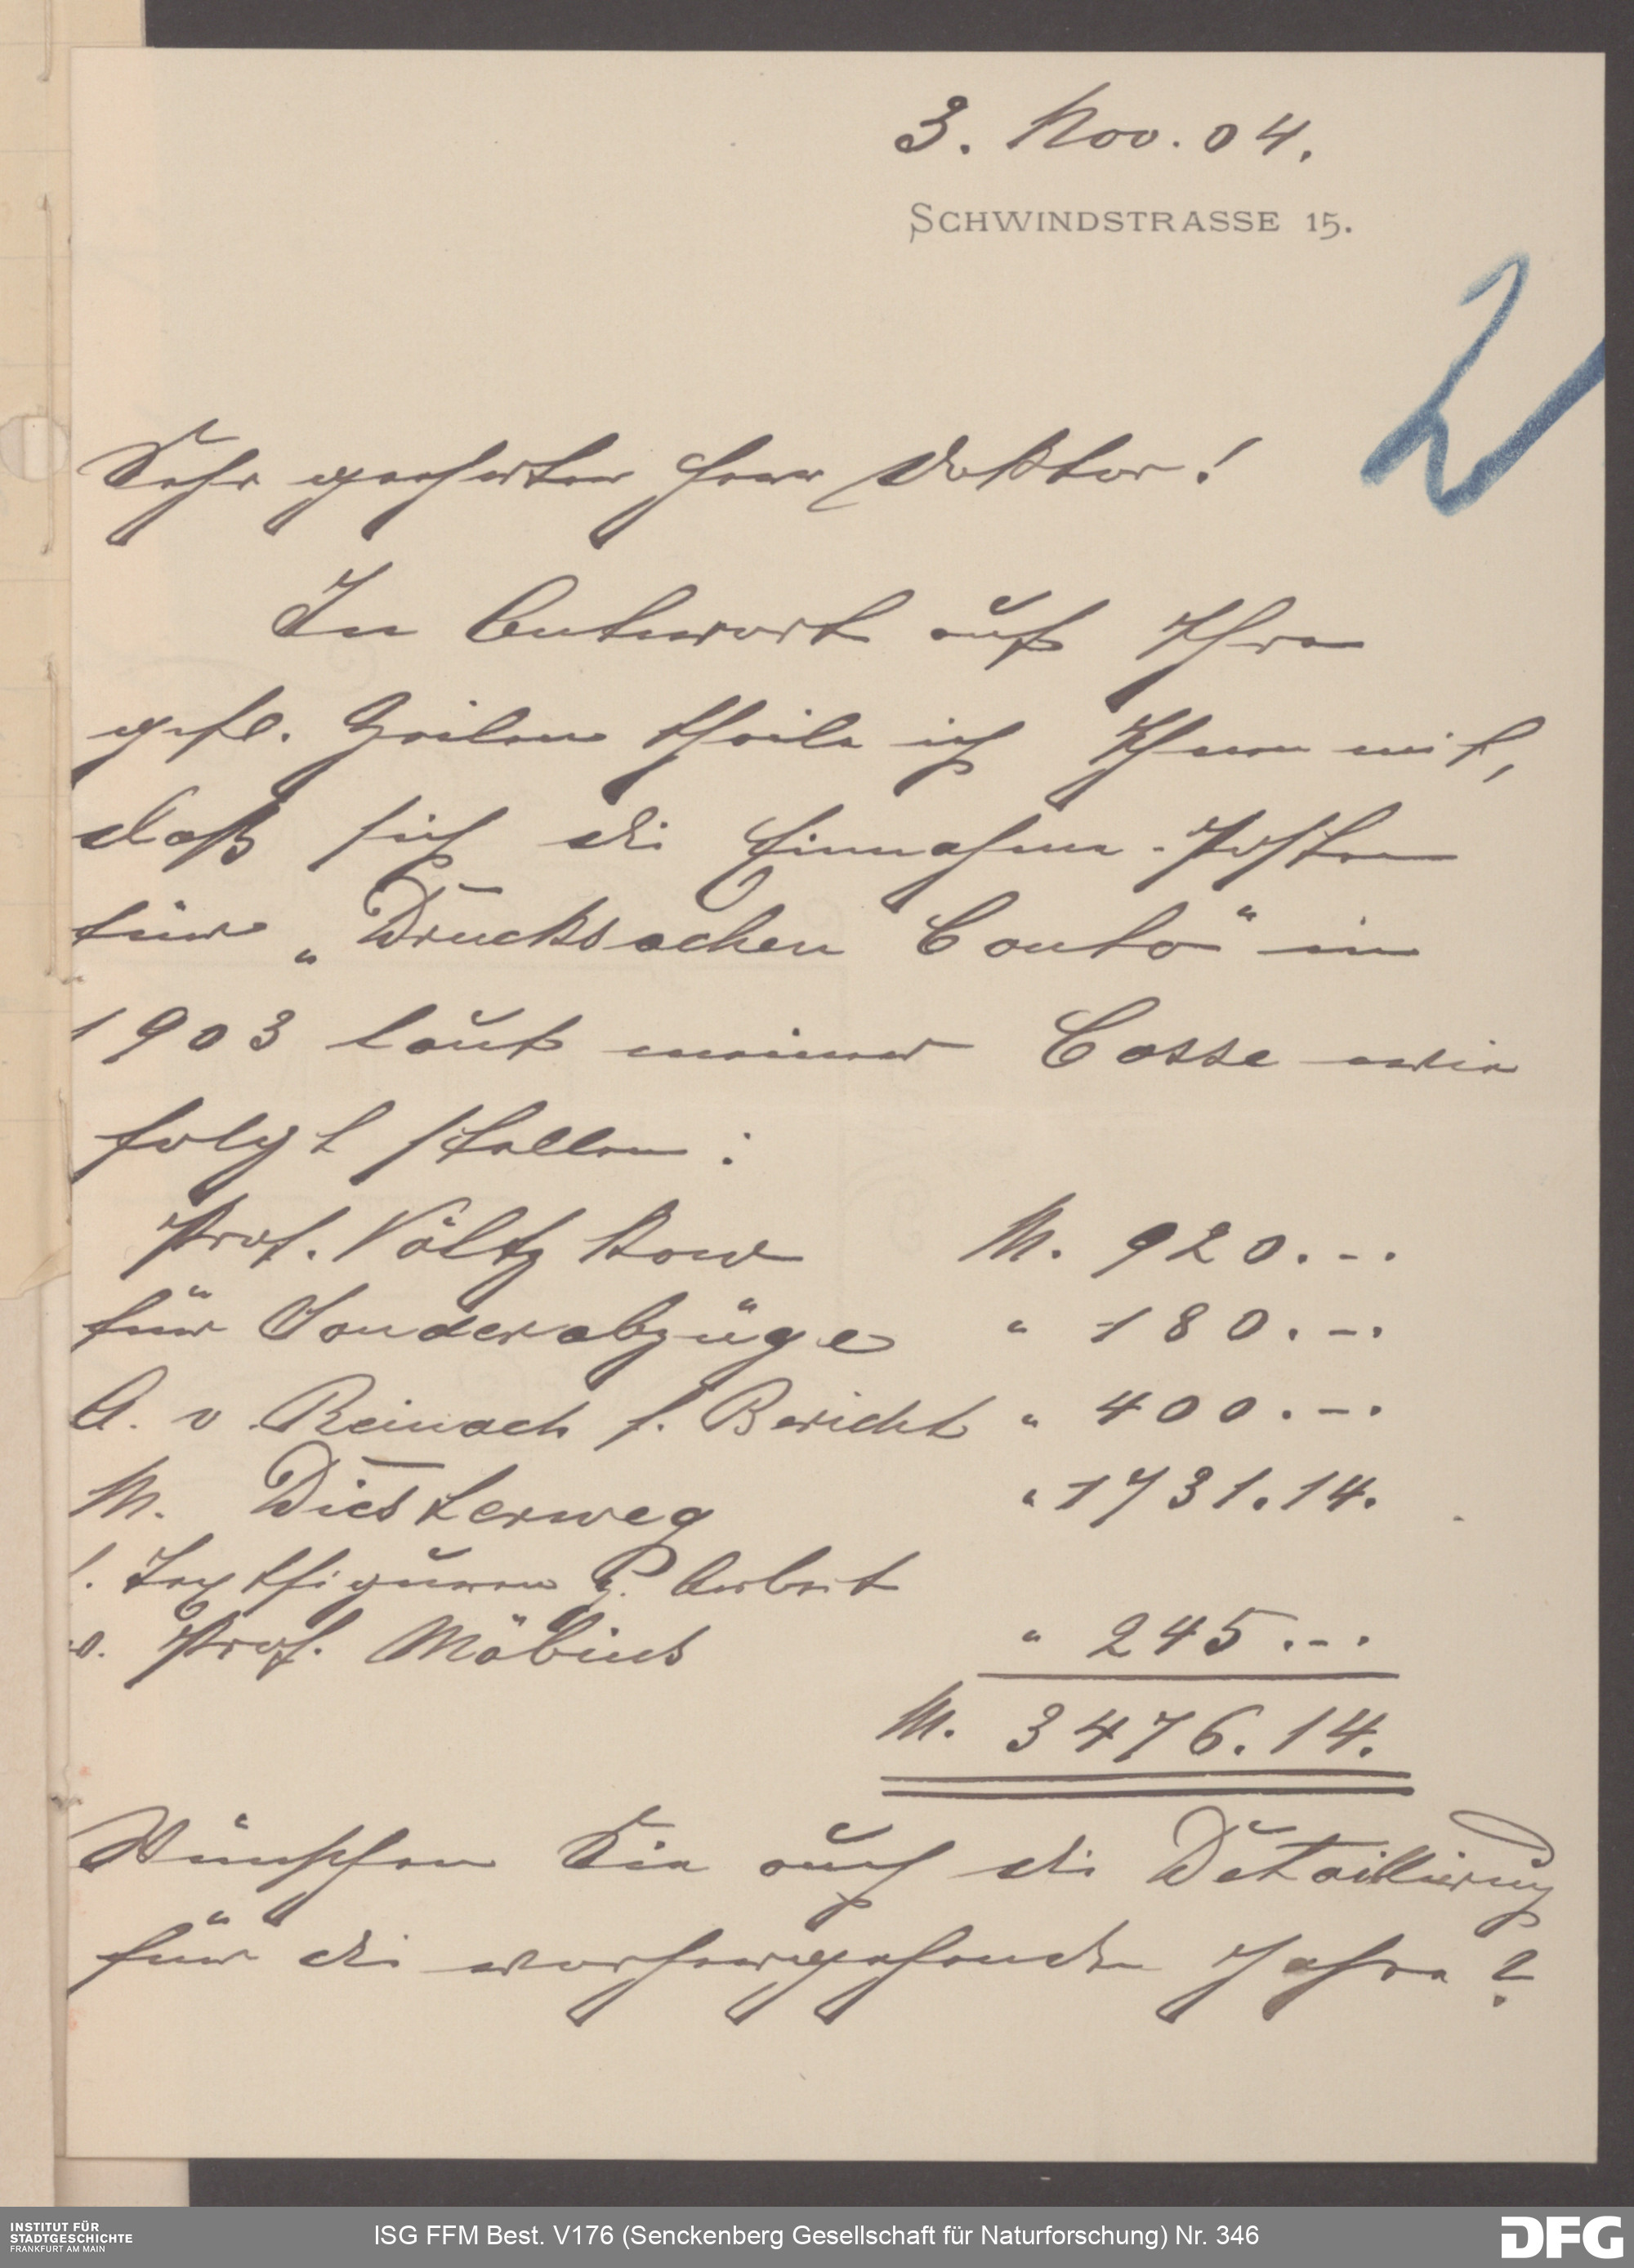 3. Nov. 04.
SCHWINDSTRASSE 15.
2
Sehr geehrter Herr Doktor!
In Antwort auf Ihre
gefl. Zeilen theile ich Ihnen mit,
daß sich die Einnahme-Posten
für „Drucksachen Conto“ in
1903 laut meiner Casse wie
folgt stellen:
Prof. Völtzkow M. 920.-.
für Sonderabzüge " 180.-.
A. v. Reinach f. Bericht " 400.-.
M. Diesterweg " 1731.14.
f. Textfiguren z. Arbeit
v. Prof. Möbius " 245.-.
M. 3476.14.
Wünschen Sie auch die Detaillierung
für die vorhergehenden Jahre?
INSTITUT FÜR
STADTGESCHICHTE
FRANKFURT AM MAIN
ISG FFM Best. V176 (Senckenberg Gesellschaft für Naturforschung) Nr. 346
DFG